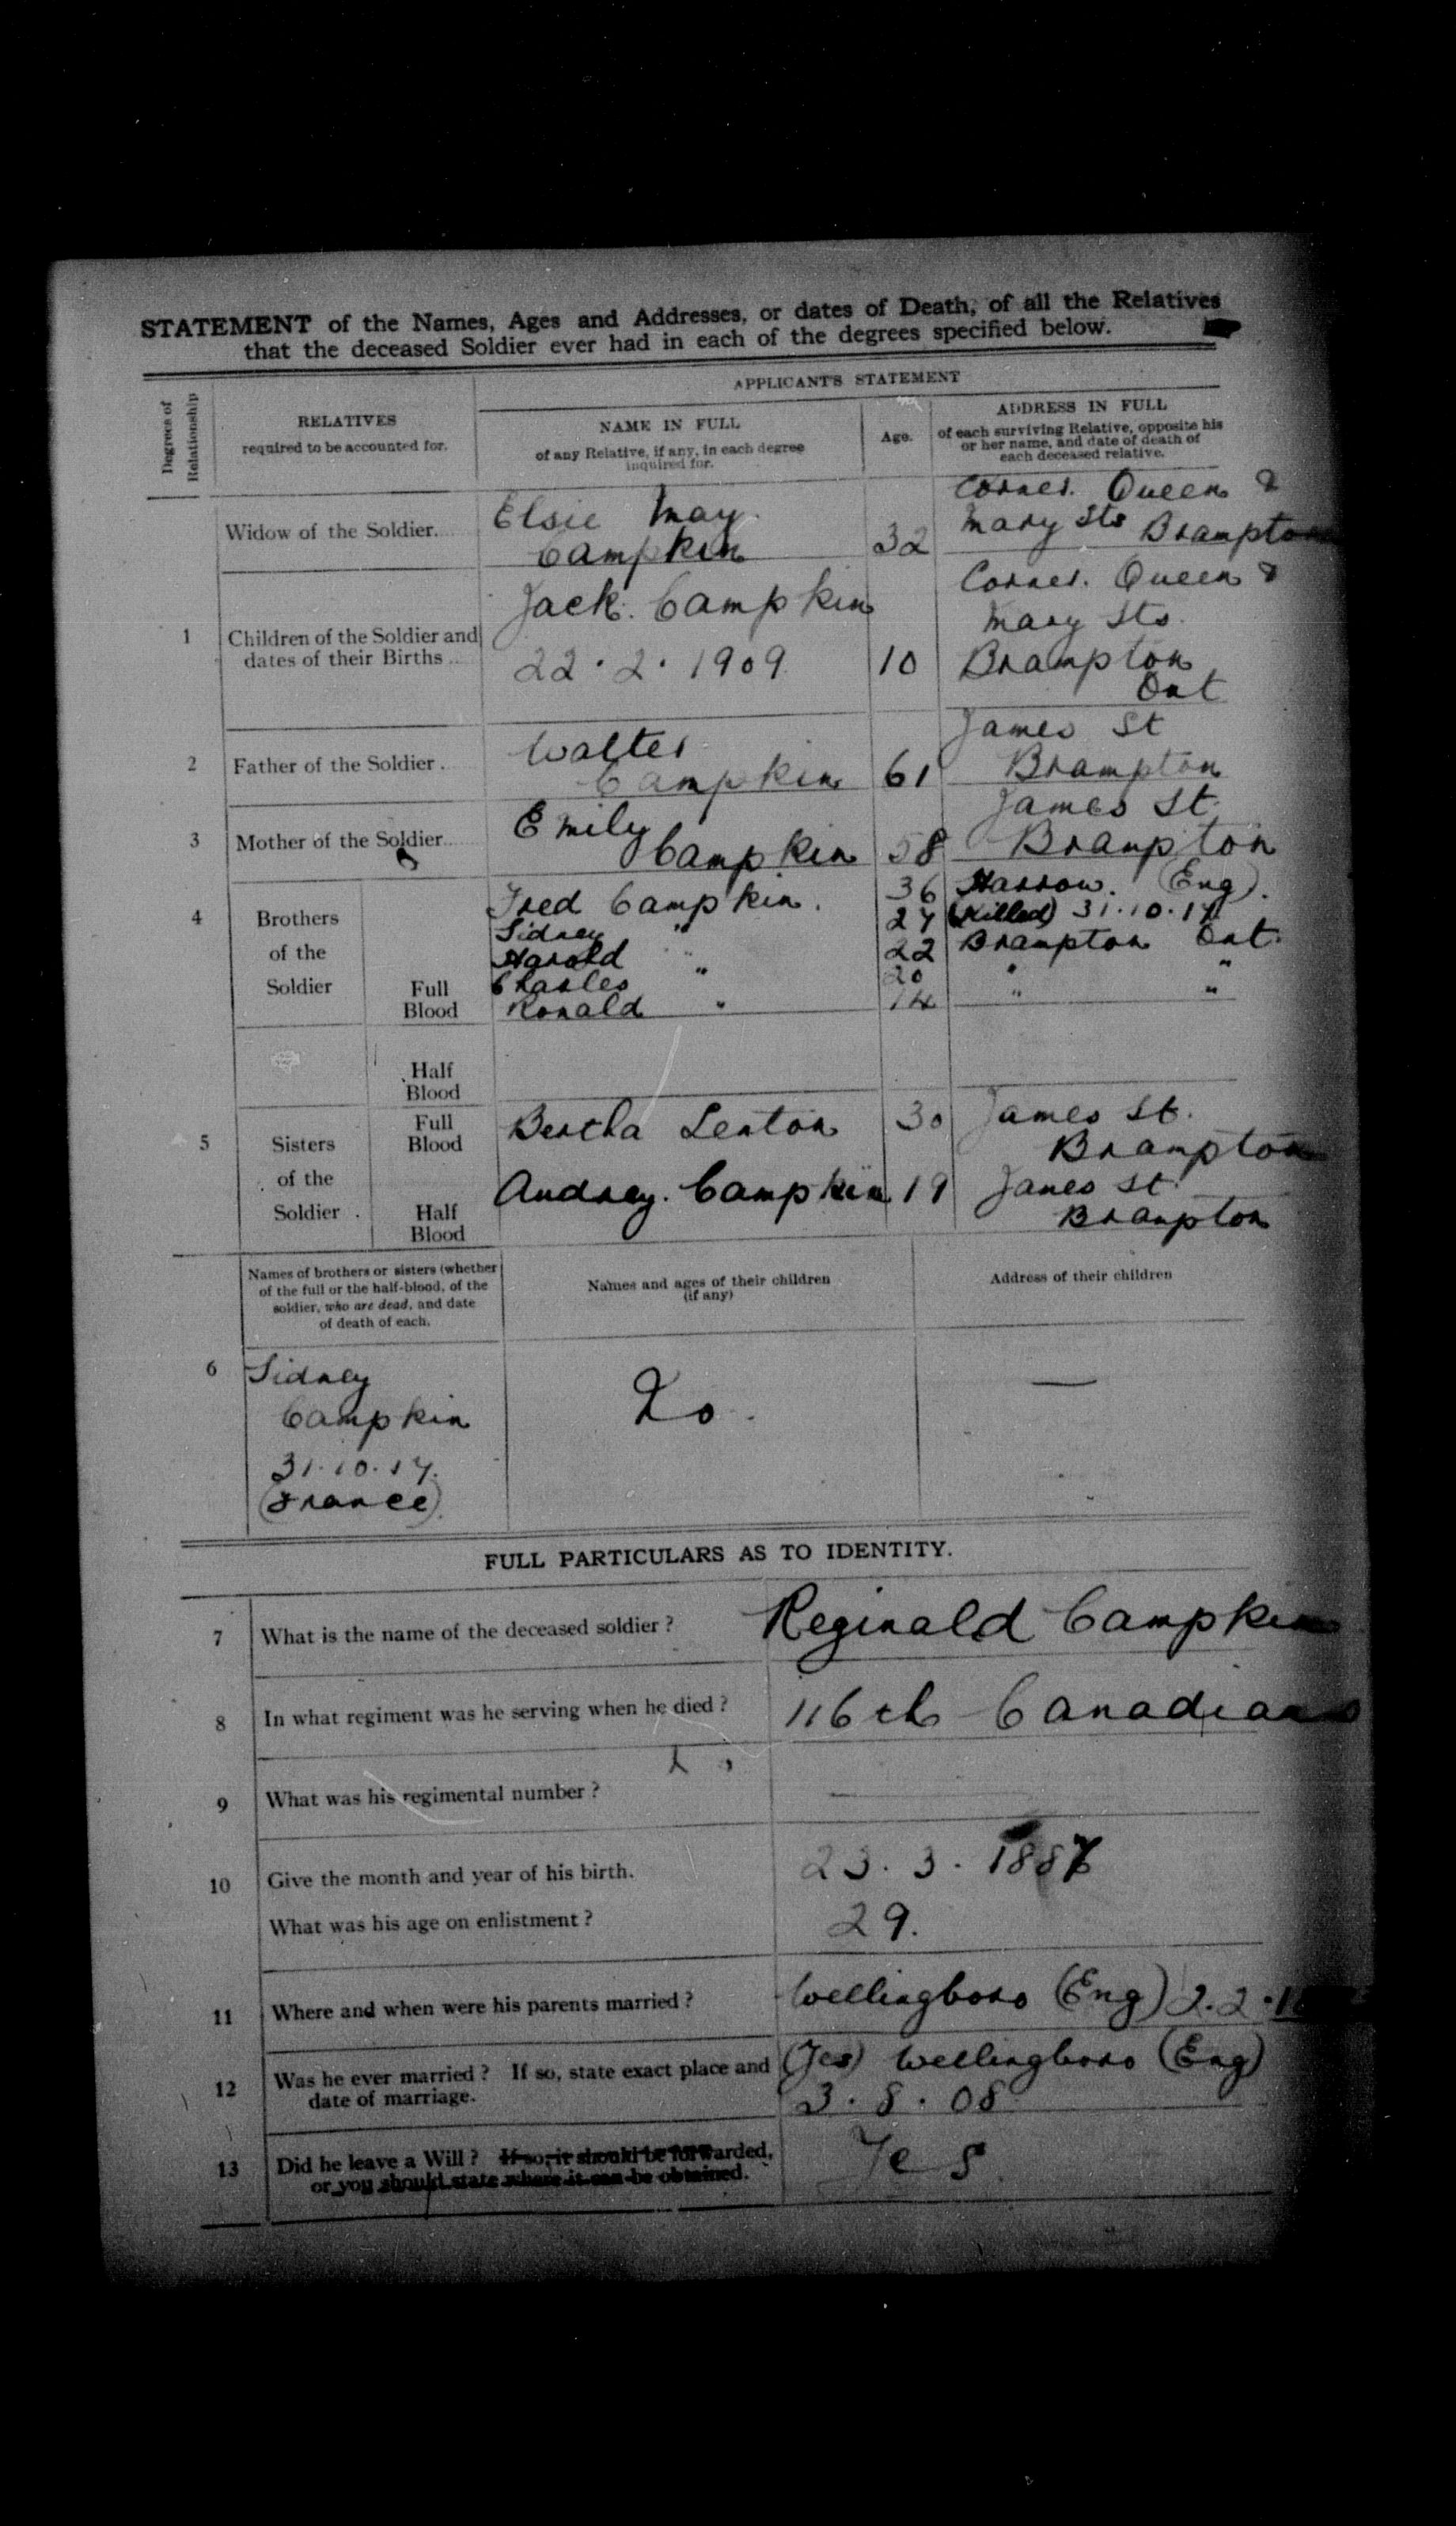 STATEMENT of the Names, Ages and Addresses, or dates of Death, of all the Relatives
that the deceased Soldier ever had in each of the degrees specified below.
Degrees of
Relationship
RELATIVES
required to be accounted for.
APPLICANT'S STATEMENT
NAME IN FULL
of any Relative, if any, in each degree
inquired for.
Age.
ADDRESS IN FULL
of each surviving Relative, opposite his
or her name, and date of death of
each deceased relative.
Widow of the Soldier.
Elsie May
Campkin
32
Corner. Queen &
Mary Sts Brampton
1
Children of the Soldier and
dates of their Births
Jack. Campkin
22.2.1909
10
Corner. Queen &
Mary Sts.
Brampton
Ont
2
Father of the Soldier
Walter
Campkin
61
James St
Brampton
3
Mother of the Soldier
Emily
Campkin
58
James St.
Brampton
4
Brothers
of the
Soldier
Full
Blood
Fred Campkin. 36 Harrow. (Eng).
Sidney " 27 (Killed) 31.10.17
Harold " 22 Brampton Ont.
Charles " 20 " "
Ronald " 14 " "
Half
Blood
5
Sisters
of the
Soldier
Full
Blood
Bertha Lenton 30 James St.
Brampton
Half
Blood
Audrey. Campkin 19 James St.
Brampton
Names of brothers or sisters (whether
of the full or the half-blood, of the
soldier, who are dead, and date
of death of each.
Names and ages of their children
(if any)
Address of their children
6
Sidney
Campkin
31.10.17.
(France).
No.
—
FULL PARTICULARS AS TO IDENTITY.
7 What is the name of the deceased soldier? Reginald Campkin
8 In what regiment was he serving when he died? 116th Canadians
9 What was his regimental number? —
10 Give the month and year of his birth. 23.3.1887
What was his age on enlistment? 29.
11 Where and when were his parents married? Wellingboro (Eng) 2.2.
12 Was he ever married? If so, state exact place and
date of marriage.
(Yes) Wellingboro (Eng)
3.8.08
13 Did he leave a Will? If so, it should be forwarded,
or you should state where it can be obtained.
Yes